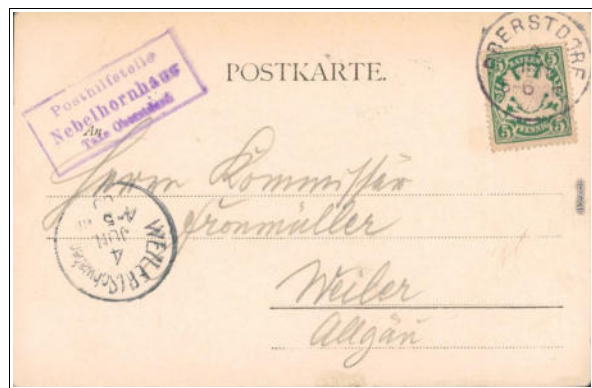 Posthilfstelle
Nebelhornhaus
Taxe Oberstdorf
POSTKARTE.
OBERSTDORF
BAYERN
5 5
5 PFENNIG 5
An
Herrn Kommissär
Fronmüller
Weiler
Allgäu
WEILER (Schwaben)
4
JUN
4-5